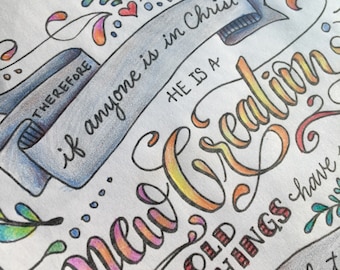 THEREFORE
if anyone is in Christ
HE IS A
New Creation
OLD
THINGS have